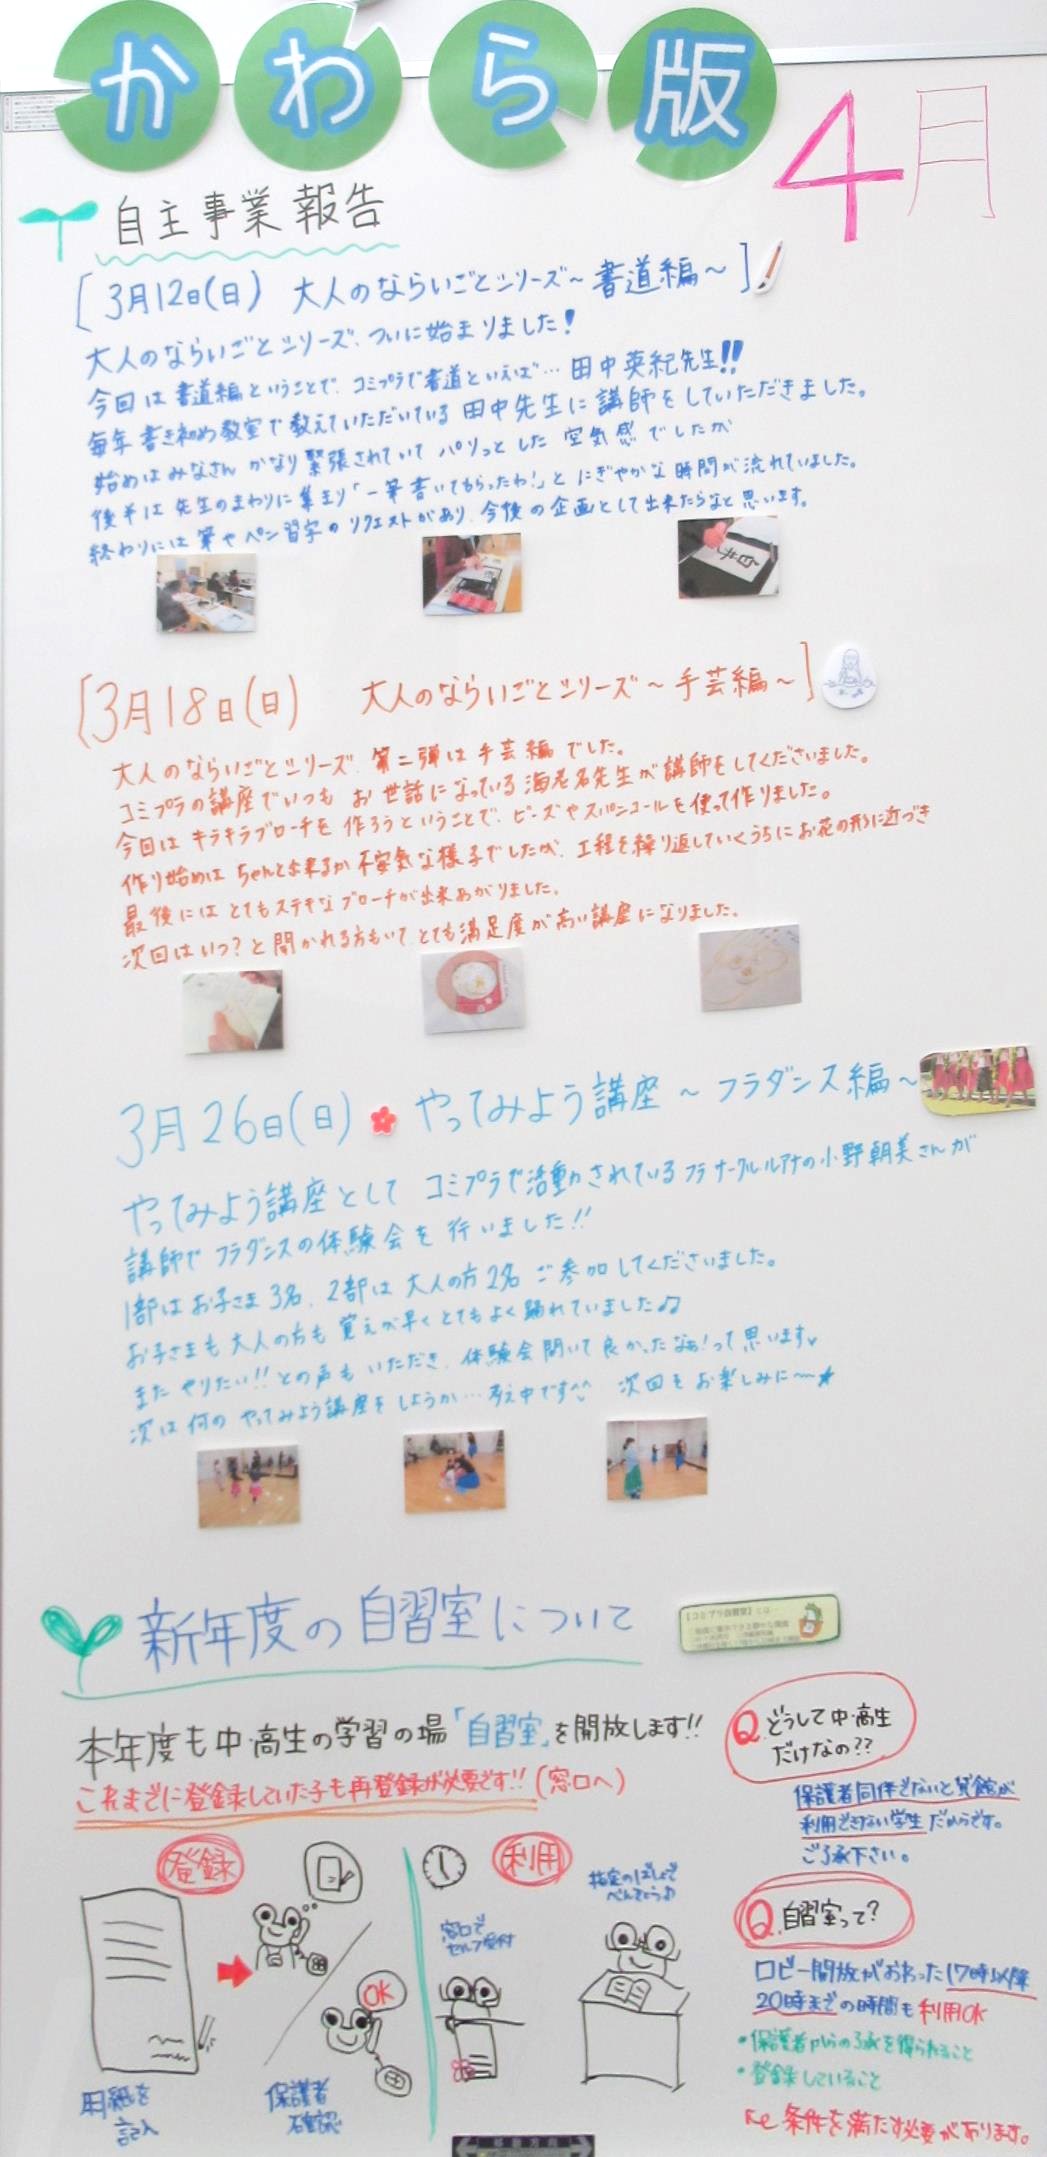 かわら版
4月
自主事業報告
[3月12日(日) 大人のならいごとシリーズ～書道編～]
大人のならいごとシリーズ、ついに始まりました!
今回は書道編ということで、コミプラで書道といえば… 田中英紀先生!!
毎年書き初め教室で教えていただいている田中先生に講師をしていただきました。
始めはみなさんかなり緊張されていてパリっとした空気感でしたが
後半は先生のまわりに集まり「一筆書いてもらったわ!」とにぎやかな時間が流れていました。
終わりには筆やペン習字のリクエストがあり、今後の企画として出来たらなと思います。
[3月18日(日) 大人のならいごとシリーズ～手芸編～]
大人のならいごとシリーズ、第二弾は手芸編でした。
コミプラの講座でいつもお世話になっている海老名先生が講師をしてくださいました。
今回はキラキラブローチを作ろうということで、ビーズやスパンコールを使って作りました。
作り始めはちゃんと出来るか不安気な様子でしたが、工程を繰り返していくうちにお花の形に近づき
最後にはとてもステキなブローチが出来あがりました。
次回はいつ?と聞かれる方もいてとても満足度が高い講座になりました。
3月26日(日) やってみよう講座～フラダンス編～
やってみよう講座としてコミプラで活動されているフラサークルルアナの小野朝美さんが
講師でフラダンスの体験会を行いました!!
1部はお子さま3名、2部は大人の方2名ご参加してくださいました。
お子さまも大人の方も覚えが早くとてもよく踊れていました♫
またやりたい!!との声もいただき、体験会開いて良かったなぁ!って思います♥
次は何のやってみよう講座をしようか…考え中です^^ 次回もお楽しみに～★
新年度の自習室について
【コミプラ自習室】とは…
本年度も中・高生の学習の場「自習室」を開放します!!
これまでに登録していた子も再登録が必要です!!(窓口へ)
Q.どうして中・高生
だけなの??
保護者同伴でないと貸館が
利用できない学生だからです。
ご了承下さい。
登録
用紙を
記入
OK
保護者
確認
利用
窓口で
セルフ受付
指定のばしょで
べんきょう♪
Q.自習室って?
ロビー開放がおわった17時以降
20時までの時間も利用OK
・保護者からの了承を得られること
・登録していること
条件を満たす必要があります。